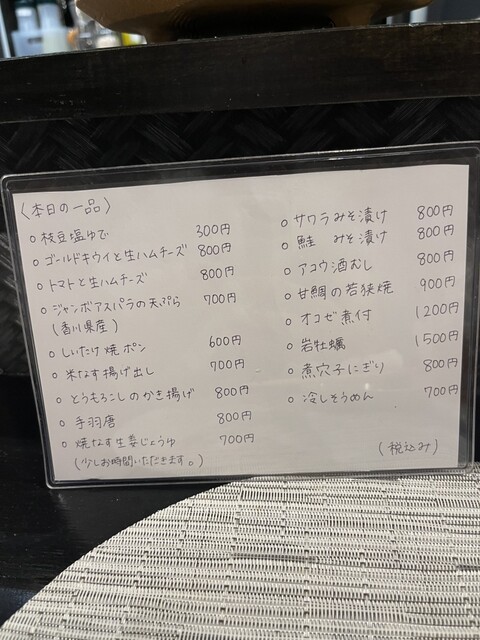 〈本日の一品〉
○枝豆塩ゆで 300円
○ゴールドキウイと生ハムチーズ 800円
○トマトと生ハムチーズ 800円
○ジャンボアスパラの天ぷら 700円
(香川県産)
○しいたけ焼ポン 600円
○米なす揚げ出し 700円
○とうもろこしのかき揚げ 800円
○手羽唐 800円
○焼なす生姜じょうゆ 700円
(少しお時間いただきます。)
○サワラみそ漬け 800円
○鮭 みそ漬け 800円
○アコウ酒むし 800円
○甘鯛の若狭焼 900円
○オコゼ煮付 1200円
○岩牡蠣 1500円
○煮穴子にぎり 800円
○冷しそうめん 700円
(税込み)